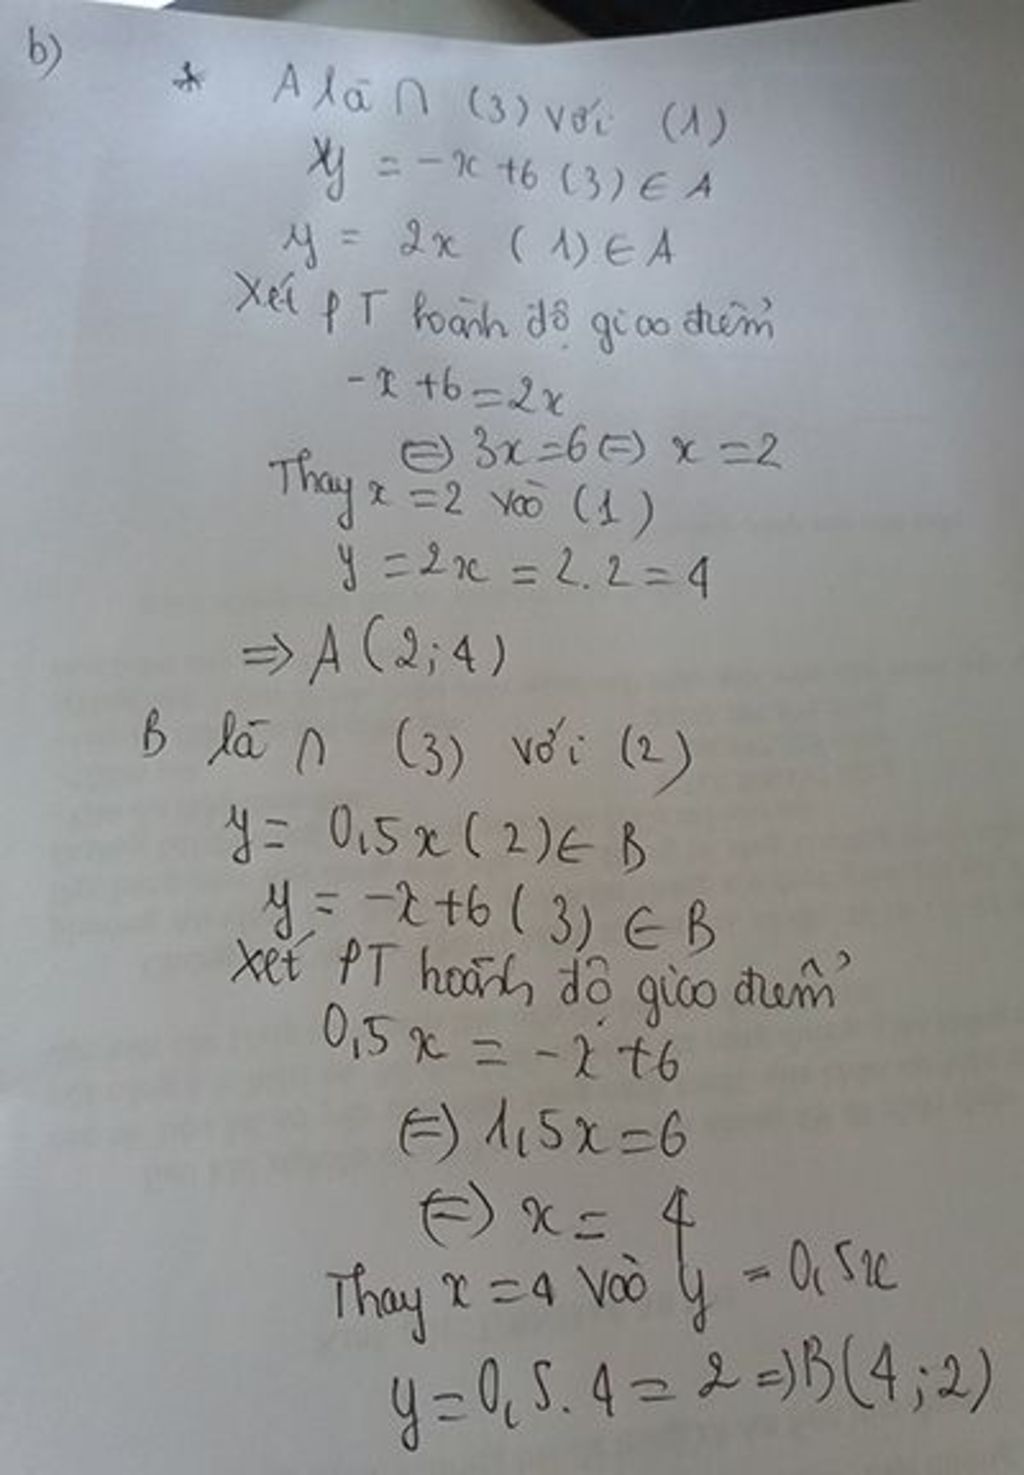 b)
* A là ∩ (3) với (1)
y = -x +6 (3) ∈ A
y = 2x (1) ∈ A
Xét PT hoành độ giao điểm
-x +6 = 2x
⇔ 3x = 6 ⇔ x = 2
Thay x = 2 vào (1)
y = 2x = 2.2 = 4
⇒ A (2;4)
B là ∩ (3) với (2)
y = 0,5x (2) ∈ B
y = -x+6 (3) ∈ B
Xét PT hoành độ giao điểm
0,5x = -x +6
⇔ 1,5x = 6
⇔ x = 4
Thay x = 4 vào y = 0,5x
y = 0,5.4 = 2 ⇒ B(4;2)